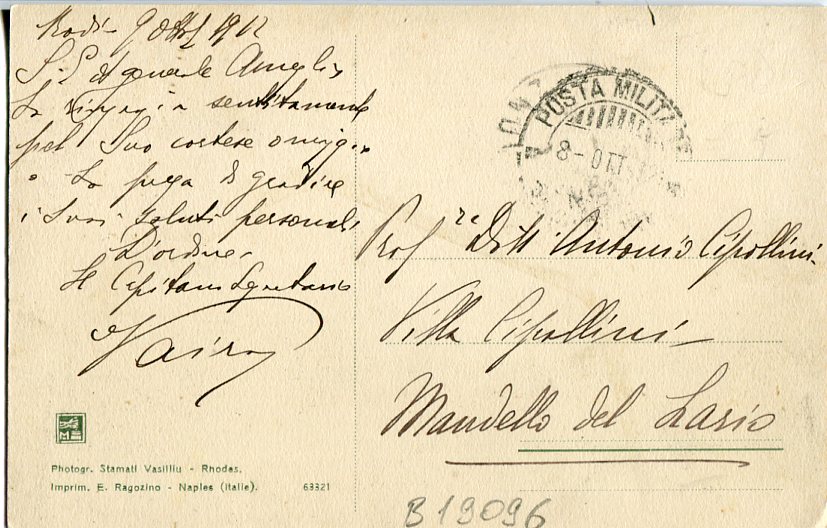 Rodi 9 Ott 1912
S. E. il generale Ameglio
La ringrazia sentitamente
pel Suo cortese omaggio
e La prega di gradire
i Suoi saluti personali
D'ordine
Il Capitano Segretario
POSTA MILITARE
8 - OTT 12
Prof.re Dott Antonio Cipollini
Villa Cipollini
Mandello del Lario
Photogr. Stamati Vasilliu - Rhodes.
Imprim. E. Ragozino - Naples (Italie). 63321
B19096